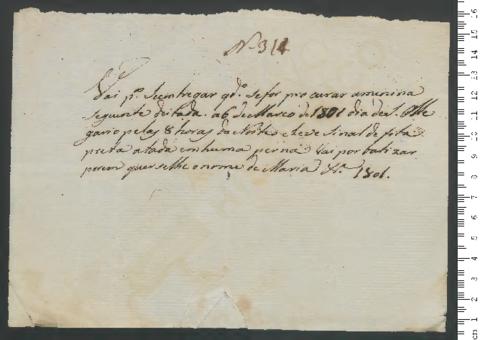 Nº 314
Vai pª. Seentregar qdº. sefor pro curar amenina
seguinte deitada. a6 deMarço de 1801 dia deS. Olle
gario pelas 8 horas da Noite e leve Sinal de fita
preta atada emhuma perna Vai por batizar
porem quer selhe onome de Maria 1801.